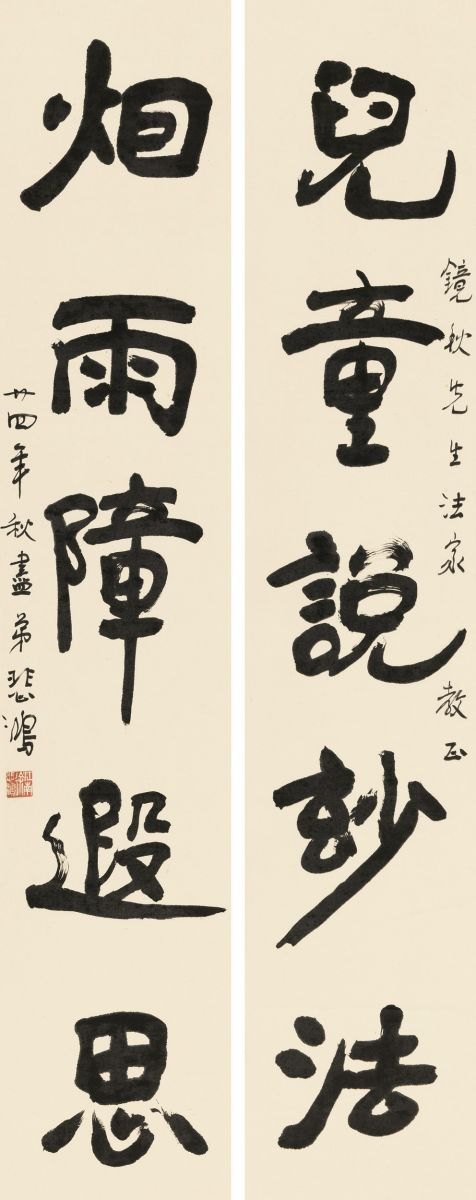 兒童說玅法
鏡秋先生法家 教正
烟雨障遐思
廿四年秋盡弟悲鴻